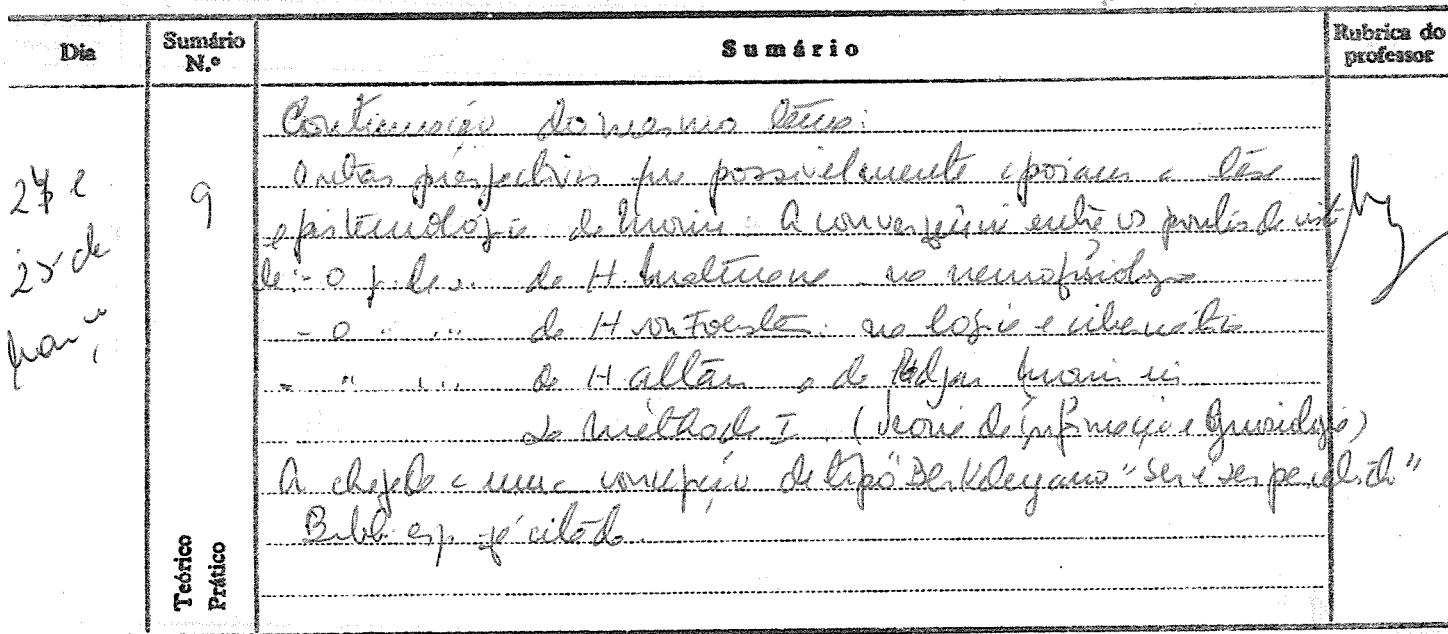 Dia
Sumário N.º
Sumário
Rubrica do professor
9
Continuação do mesmo tema:
Outras perspectivas que possivelmente apoiam a tese
epistemológica de Morin: A convergência entre os pontos de vista
de: - O p. de v. de H. Maturana na neurofisiologia
- O " " de H von Foerster: na lógica e cibernética
- " " de H Atlan e de Edgar Morin in
La Méthode I (teoria da informação e
A chegada a uma concepção de tipo Berkeleyano "ser é ser percebido"
Bibl. esp. já citada.
Teórico
Prático